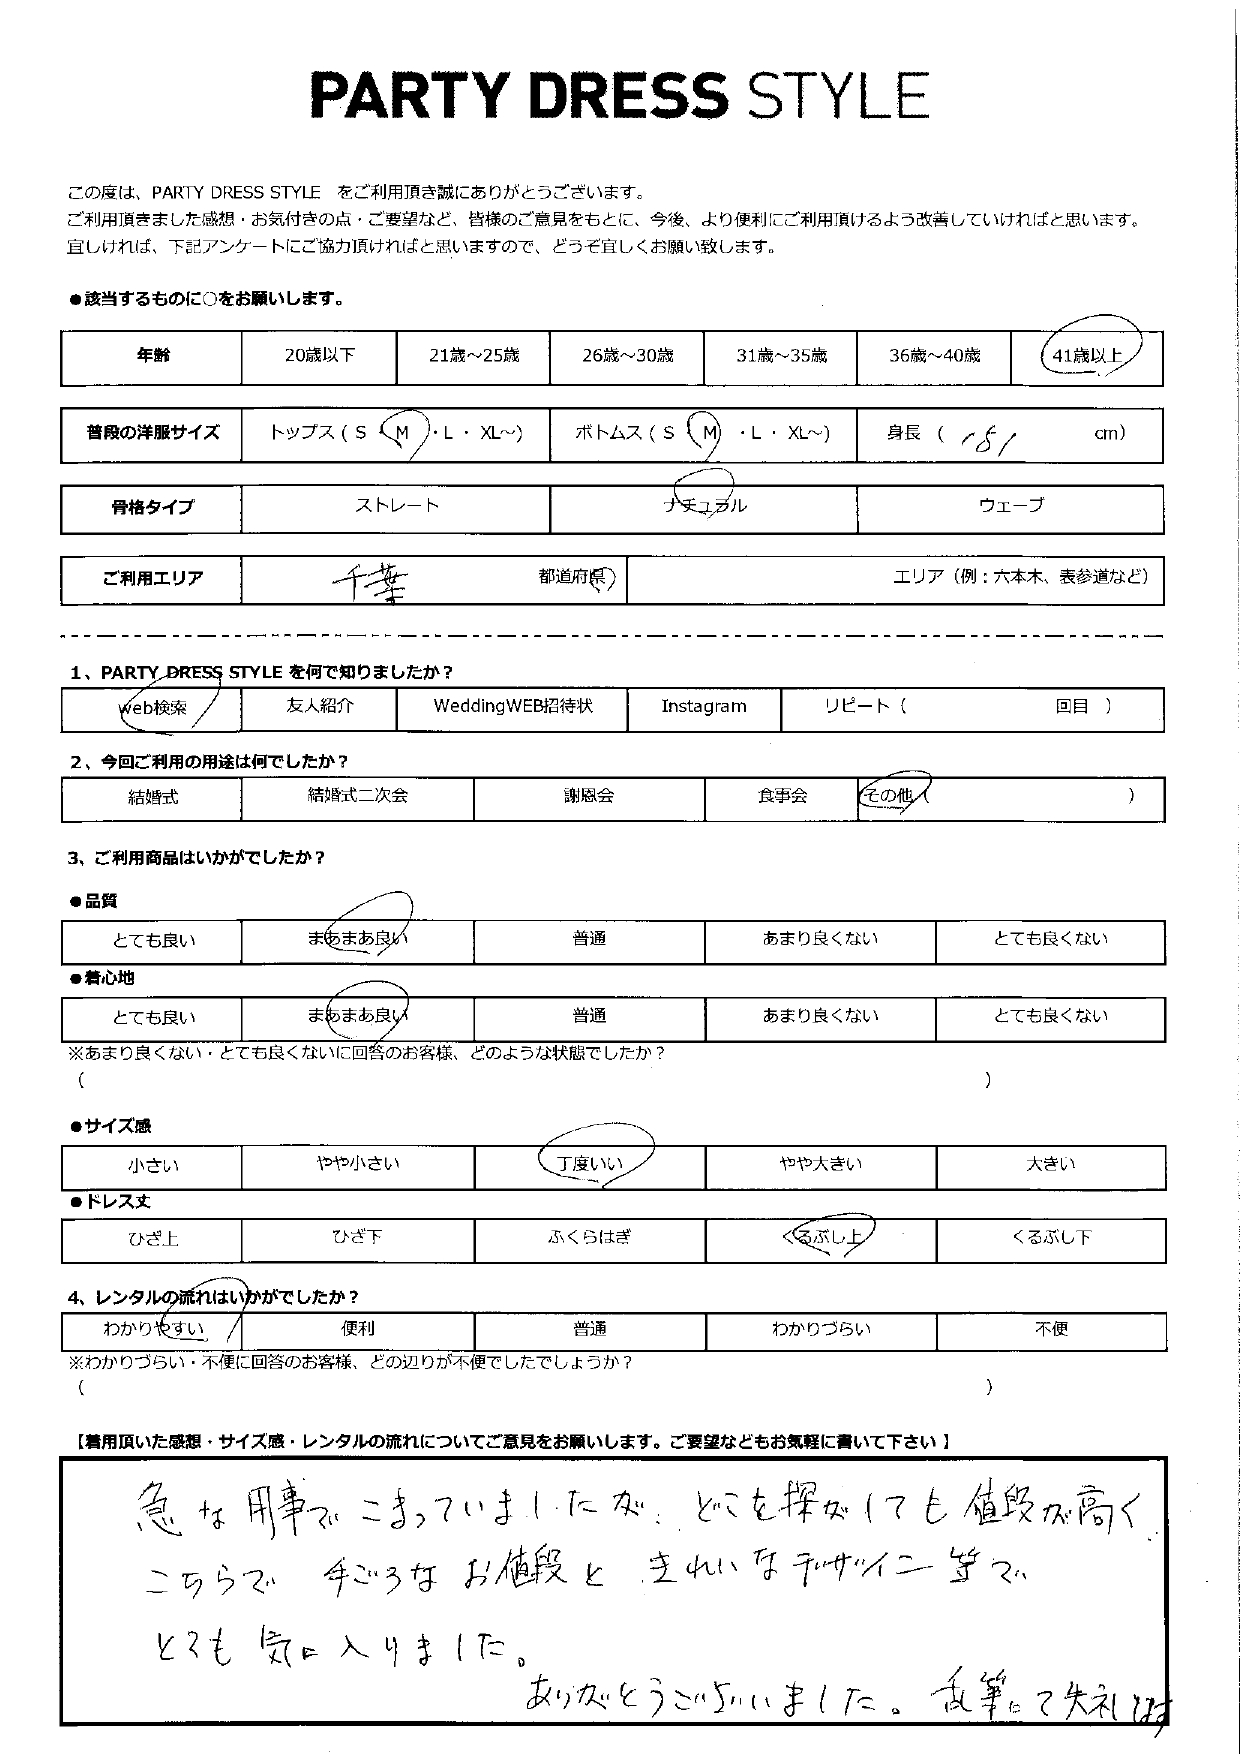 PARTY DRESS STYLE
この度は、PARTY DRESS STYLE をご利用頂き誠にありがとうございます。
ご利用頂きました感想・お気付きの点・ご要望など、皆様のご意見をもとに、今後、より便利にご利用頂けるよう改善していければと思います。
宜しければ、下記アンケートにご協力頂ければと思いますので、どうぞ宜しくお願い致します。
●該当するものに○をお願いします。
年齢 20歳以下 21歳～25歳 26歳～30歳 31歳～35歳 36歳～40歳 41歳以上
普段の洋服サイズ トップス ( S ・ M ・ L ・ XL～) ボトムス ( S ・ M ・ L ・ XL～) 身長 ( 151 cm)
骨格タイプ ストレート ナチュラル ウェーブ
ご利用エリア 千葉 都道府県 エリア（例：六本木、表参道など）
1、PARTY DRESS STYLE を何で知りましたか？
web検索 友人紹介 WeddingWEB招待状 Instagram リピート（ 回目 ）
2、今回ご利用の用途は何でしたか？
結婚式 結婚式二次会 謝恩会 食事会 その他（ ）
3、ご利用商品はいかがでしたか？
●品質
とても良い まあまあ良い 普通 あまり良くない とても良くない
●着心地
とても良い まあまあ良い 普通 あまり良くない とても良くない
※あまり良くない・とても良くないに回答のお客様、どのような状態でしたか？
( )
●サイズ感
小さい やや小さい 丁度いい やや大きい 大きい
●ドレス丈
ひざ上 ひざ下 ふくらはぎ くるぶし上 くるぶし下
4、レンタルの流れはいかがでしたか？
わかりやすい 便利 普通 わかりづらい 不便
※わかりづらい・不便に回答のお客様、どの辺りが不便でしたでしょうか？
( )
【着用頂いた感想・サイズ感・レンタルの流れについてご意見をお願いします。ご要望などもお気軽に書いて下さい 】
急な用事でこまっていましたが、どこを探がしても値段が高く
こちらで 手ごろなお値段と きれいなデザイン等で
とても気に入りました。
ありがとうございました。乱筆にて失礼します